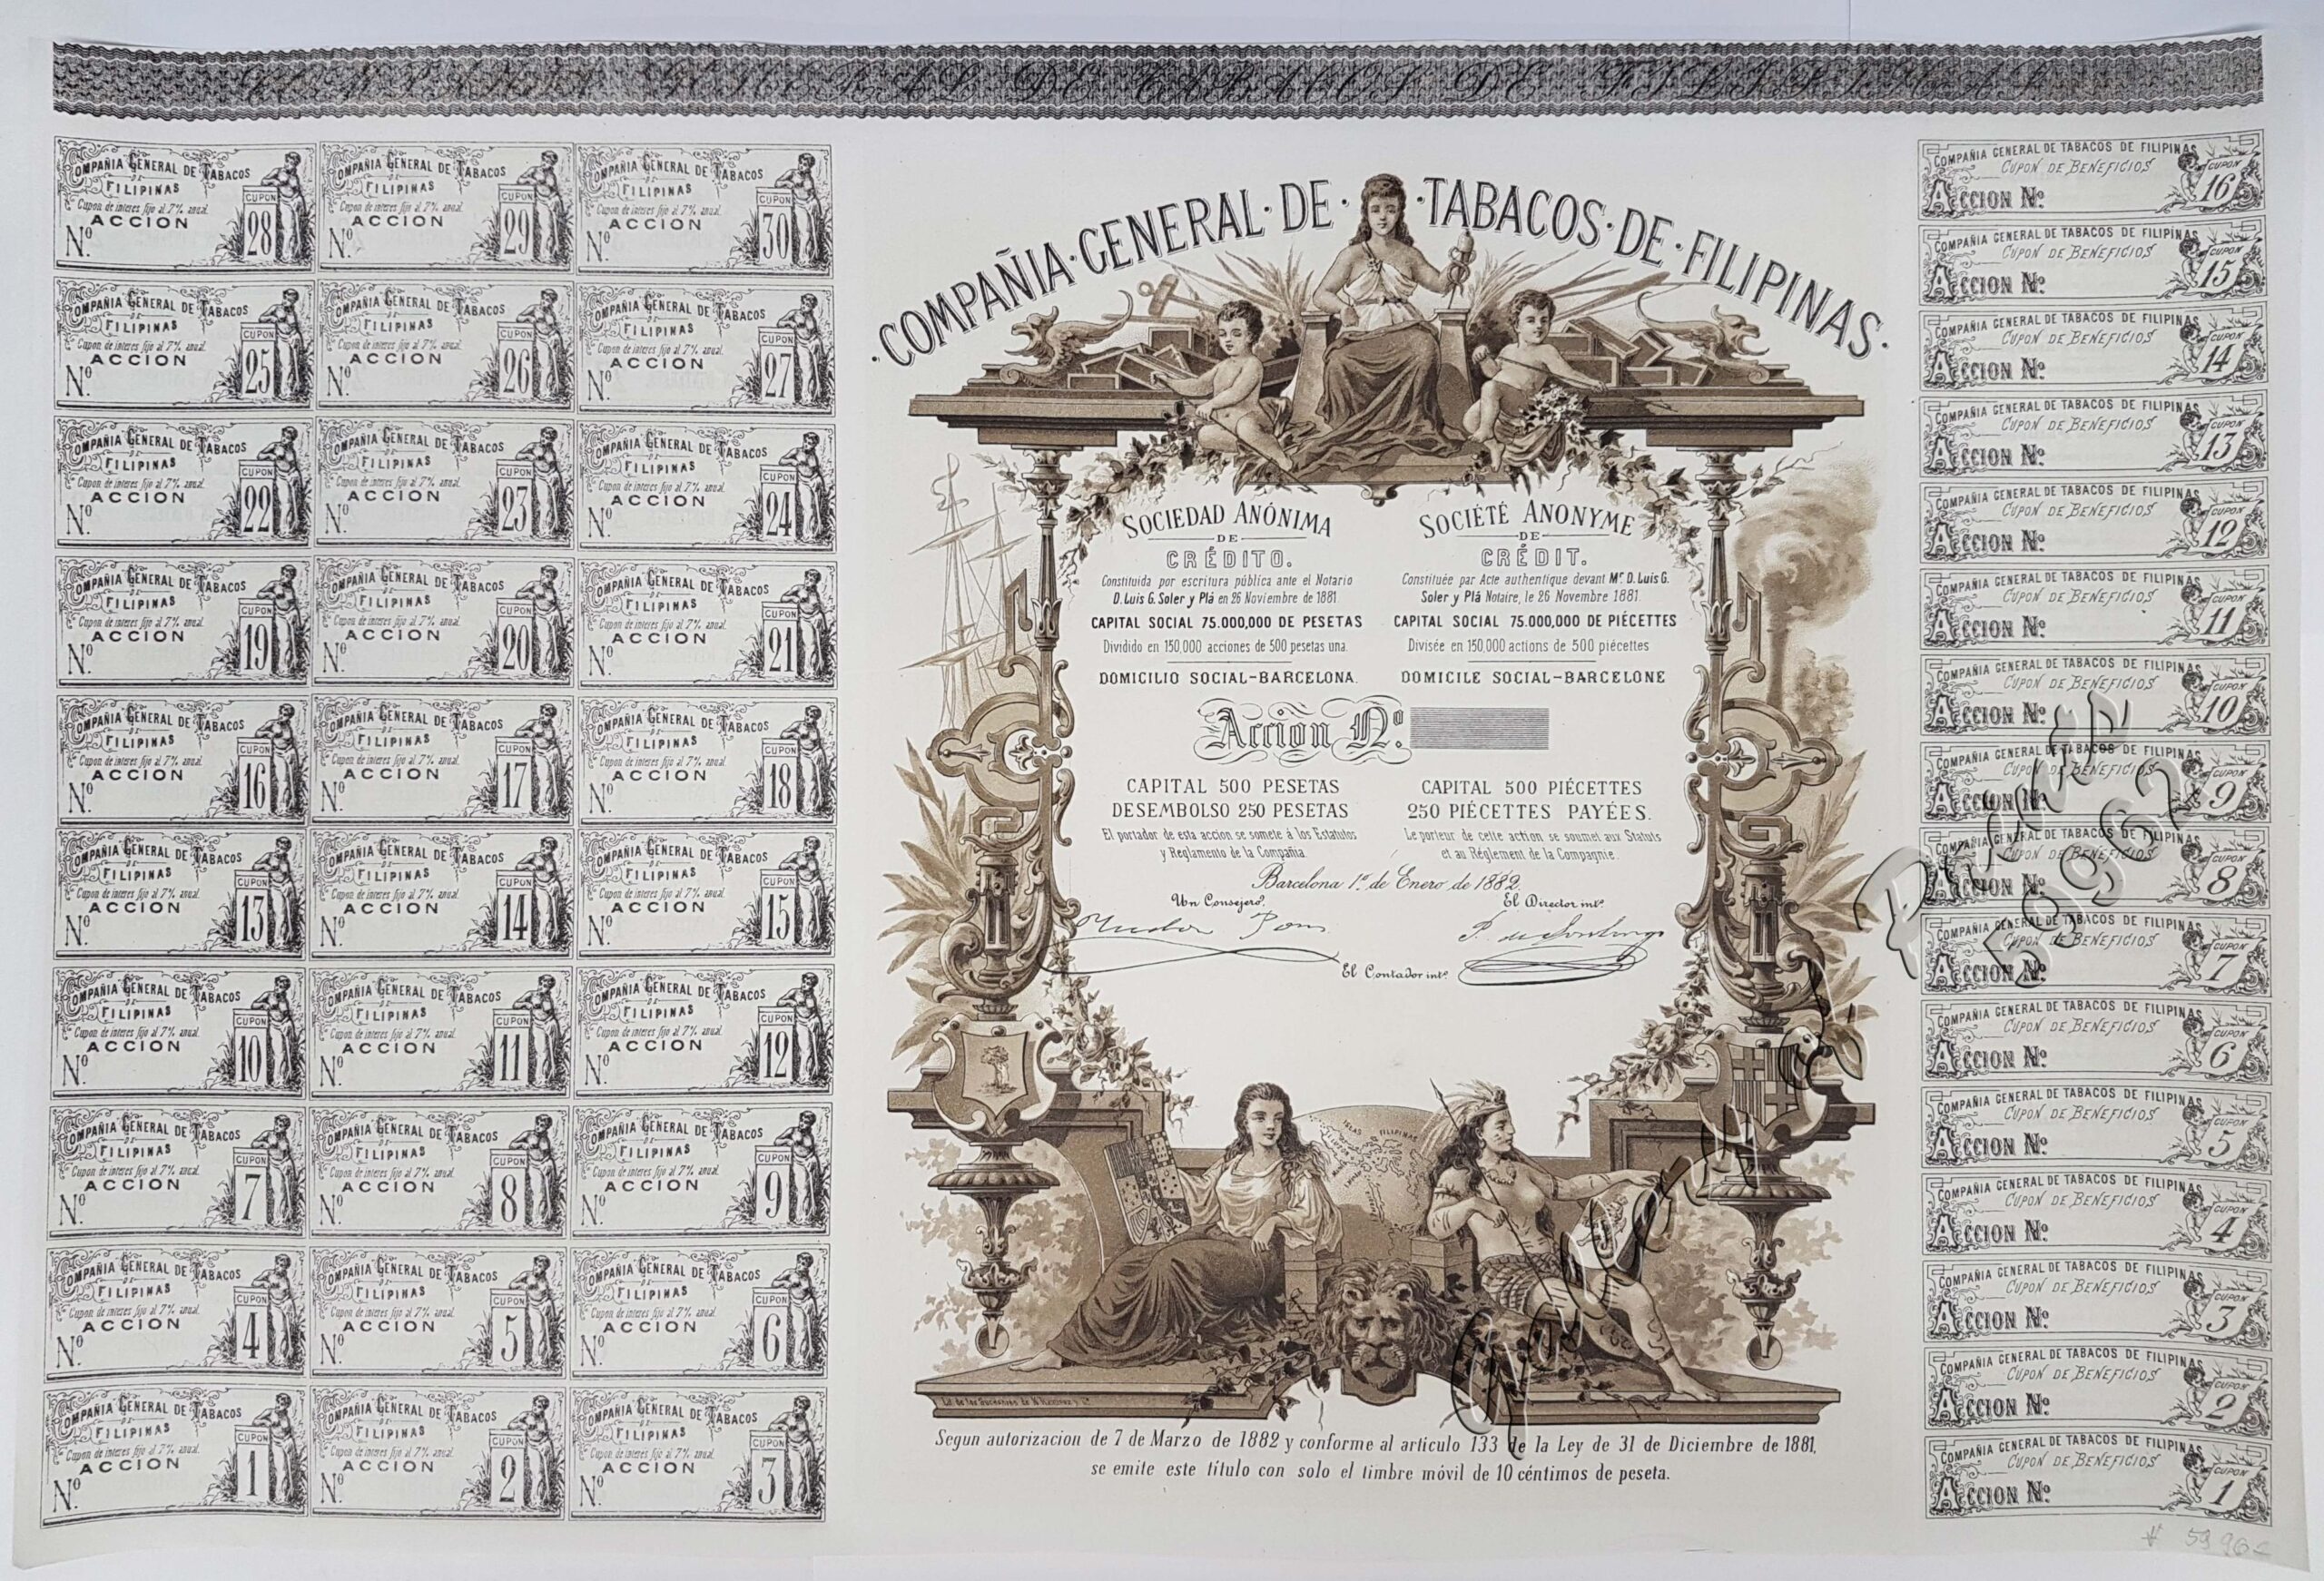 COMPAÑIA GENERAL DE TABACOS DE FILIPINAS
COMPAÑIA GENERAL DE TABACOS
DE
FILIPINAS
Cupon de interes fijo al 7% anual.
ACCION
Nº
CUPON
28
COMPAÑIA GENERAL DE TABACOS
DE
FILIPINAS
Cupon de interes fijo al 7% anual.
ACCION
Nº
CUPON
29
COMPAÑIA GENERAL DE TABACOS
DE
FILIPINAS
Cupon de interes fijo al 7% anual.
ACCION
Nº
CUPON
30
COMPAÑIA GENERAL DE TABACOS
DE
FILIPINAS
Cupon de interes fijo al 7% anual.
ACCION
Nº
CUPON
25
COMPAÑIA GENERAL DE TABACOS
DE
FILIPINAS
Cupon de interes fijo al 7% anual.
ACCION
Nº
CUPON
26
COMPAÑIA GENERAL DE TABACOS
DE
FILIPINAS
Cupon de interes fijo al 7% anual.
ACCION
Nº
CUPON
27
COMPAÑIA GENERAL DE TABACOS
DE
FILIPINAS
Cupon de interes fijo al 7% anual.
ACCION
Nº
CUPON
22
COMPAÑIA GENERAL DE TABACOS
DE
FILIPINAS
Cupon de interes fijo al 7% anual.
ACCION
Nº
CUPON
23
COMPAÑIA GENERAL DE TABACOS
DE
FILIPINAS
Cupon de interes fijo al 7% anual.
ACCION
Nº
CUPON
24
COMPAÑIA GENERAL DE TABACOS
DE
FILIPINAS
Cupon de interes fijo al 7% anual.
ACCION
Nº
CUPON
19
COMPAÑIA GENERAL DE TABACOS
DE
FILIPINAS
Cupon de interes fijo al 7% anual.
ACCION
Nº
CUPON
20
COMPAÑIA GENERAL DE TABACOS
DE
FILIPINAS
Cupon de interes fijo al 7% anual.
ACCION
Nº
CUPON
21
COMPAÑIA GENERAL DE TABACOS
DE
FILIPINAS
Cupon de interes fijo al 7% anual.
ACCION
Nº
CUPON
16
COMPAÑIA GENERAL DE TABACOS
DE
FILIPINAS
Cupon de interes fijo al 7% anual.
ACCION
Nº
CUPON
17
COMPAÑIA GENERAL DE TABACOS
DE
FILIPINAS
Cupon de interes fijo al 7% anual.
ACCION
Nº
CUPON
18
COMPAÑIA GENERAL DE TABACOS
DE
FILIPINAS
Cupon de interes fijo al 7% anual.
ACCION
Nº
CUPON
13
COMPAÑIA GENERAL DE TABACOS
DE
FILIPINAS
Cupon de interes fijo al 7% anual.
ACCION
Nº
CUPON
14
COMPAÑIA GENERAL DE TABACOS
DE
FILIPINAS
Cupon de interes fijo al 7% anual.
ACCION
Nº
CUPON
15
COMPAÑIA GENERAL DE TABACOS
DE
FILIPINAS
Cupon de interes fijo al 7% anual.
ACCION
Nº
CUPON
10
COMPAÑIA GENERAL DE TABACOS
DE
FILIPINAS
Cupon de interes fijo al 7% anual.
ACCION
Nº
CUPON
11
COMPAÑIA GENERAL DE TABACOS
DE
FILIPINAS
Cupon de interes fijo al 7% anual.
ACCION
Nº
CUPON
12
COMPAÑIA GENERAL DE TABACOS
DE
FILIPINAS
Cupon de interes fijo al 7% anual.
ACCION
Nº
CUPON
7
COMPAÑIA GENERAL DE TABACOS
DE
FILIPINAS
Cupon de interes fijo al 7% anual.
ACCION
Nº
CUPON
8
COMPAÑIA GENERAL DE TABACOS
DE
FILIPINAS
Cupon de interes fijo al 7% anual.
ACCION
Nº
CUPON
9
COMPAÑIA GENERAL DE TABACOS
DE
FILIPINAS
Cupon de interes fijo al 7% anual.
ACCION
Nº
CUPON
4
COMPAÑIA GENERAL DE TABACOS
DE
FILIPINAS
Cupon de interes fijo al 7% anual.
ACCION
Nº
CUPON
5
COMPAÑIA GENERAL DE TABACOS
DE
FILIPINAS
Cupon de interes fijo al 7% anual.
ACCION
Nº
CUPON
6
COMPAÑIA GENERAL DE TABACOS
DE
FILIPINAS
Cupon de interes fijo al 7% anual.
ACCION
Nº
CUPON
1
COMPAÑIA GENERAL DE TABACOS
DE
FILIPINAS
Cupon de interes fijo al 7% anual.
ACCION
Nº
CUPON
2
COMPAÑIA GENERAL DE TABACOS
DE
FILIPINAS
Cupon de interes fijo al 7% anual.
ACCION
Nº
CUPON
3
·COMPAÑIA·GENERAL·DE· ·TABACOS·DE·FILIPINAS·
SOCIEDAD ANÓNIMA
DE
CRÉDITO.
Constituida por escritura pública ante el Notario
D. Luis G. Soler y Plá en 26 Noviembre de 1881.
CAPITAL SOCIAL 75.000,000 DE PESETAS
Dividido en 150,000 acciones de 500 pesetas una.
DOMICILIO SOCIAL-BARCELONA.
SOCIÉTÉ ANONYME
DE
CRÉDIT.
Constituée par Acte authentique devant Mr. D. Luis G.
Soler y Plá Notaire, le 26 Novembre 1881.
CAPITAL SOCIAL 75.000,000 DE PIÉCETTES
Divisée en 150,000 actions de 500 piécettes
DOMICILE SOCIAL-BARCELONE
Accion Nº
CAPITAL 500 PESETAS
DESEMBOLSO 250 PESETAS
El portador de esta accion se somete á los Estatutos
y Reglamento de la Compañia.
CAPITAL 500 PIÉCETTES
250 PIÉCETTES PAYÉES.
Le porteur de cette action se soumet aux Statuts
et au Réglement de la Compagnie.
Barcelona 1º de Enero de 1882.
Un Consejero.
El Director intº.
El Contador intº.
ISLAS FILIPINAS
Lit. de los Sucesores de N. Ramirez y Cª
Segun autorizacion de 7 de Marzo de 1882 y conforme al artículo 133 de la Ley de 31 de Diciembre de 1881,
se emite este título con solo el timbre móvil de 10 céntimos de peseta.
COMPAÑIA GENERAL DE TABACOS DE FILIPINAS
CUPON DE BENEFICIOS
ACCION Nº
CUPON
16
COMPAÑIA GENERAL DE TABACOS DE FILIPINAS
CUPON DE BENEFICIOS
ACCION Nº
CUPON
15
COMPAÑIA GENERAL DE TABACOS DE FILIPINAS
CUPON DE BENEFICIOS
ACCION Nº
CUPON
14
COMPAÑIA GENERAL DE TABACOS DE FILIPINAS
CUPON DE BENEFICIOS
ACCION Nº
CUPON
13
COMPAÑIA GENERAL DE TABACOS DE FILIPINAS
CUPON DE BENEFICIOS
ACCION Nº
CUPON
12
COMPAÑIA GENERAL DE TABACOS DE FILIPINAS
CUPON DE BENEFICIOS
ACCION Nº
CUPON
11
COMPAÑIA GENERAL DE TABACOS DE FILIPINAS
CUPON DE BENEFICIOS
ACCION Nº
CUPON
10
COMPAÑIA GENERAL DE TABACOS DE FILIPINAS
CUPON DE BENEFICIOS
ACCION Nº
CUPON
9
COMPAÑIA GENERAL DE TABACOS DE FILIPINAS
CUPON DE BENEFICIOS
ACCION Nº
CUPON
8
COMPAÑIA GENERAL DE TABACOS DE FILIPINAS
CUPON DE BENEFICIOS
ACCION Nº
CUPON
7
COMPAÑIA GENERAL DE TABACOS DE FILIPINAS
CUPON DE BENEFICIOS
ACCION Nº
CUPON
6
COMPAÑIA GENERAL DE TABACOS DE FILIPINAS
CUPON DE BENEFICIOS
ACCION Nº
CUPON
5
COMPAÑIA GENERAL DE TABACOS DE FILIPINAS
CUPON DE BENEFICIOS
ACCION Nº
CUPON
4
COMPAÑIA GENERAL DE TABACOS DE FILIPINAS
CUPON DE BENEFICIOS
ACCION Nº
CUPON
3
COMPAÑIA GENERAL DE TABACOS DE FILIPINAS
CUPON DE BENEFICIOS
ACCION Nº
CUPON
2
COMPAÑIA GENERAL DE TABACOS DE FILIPINAS
CUPON DE BENEFICIOS
ACCION Nº
CUPON
1
Gallery of Prints
59962